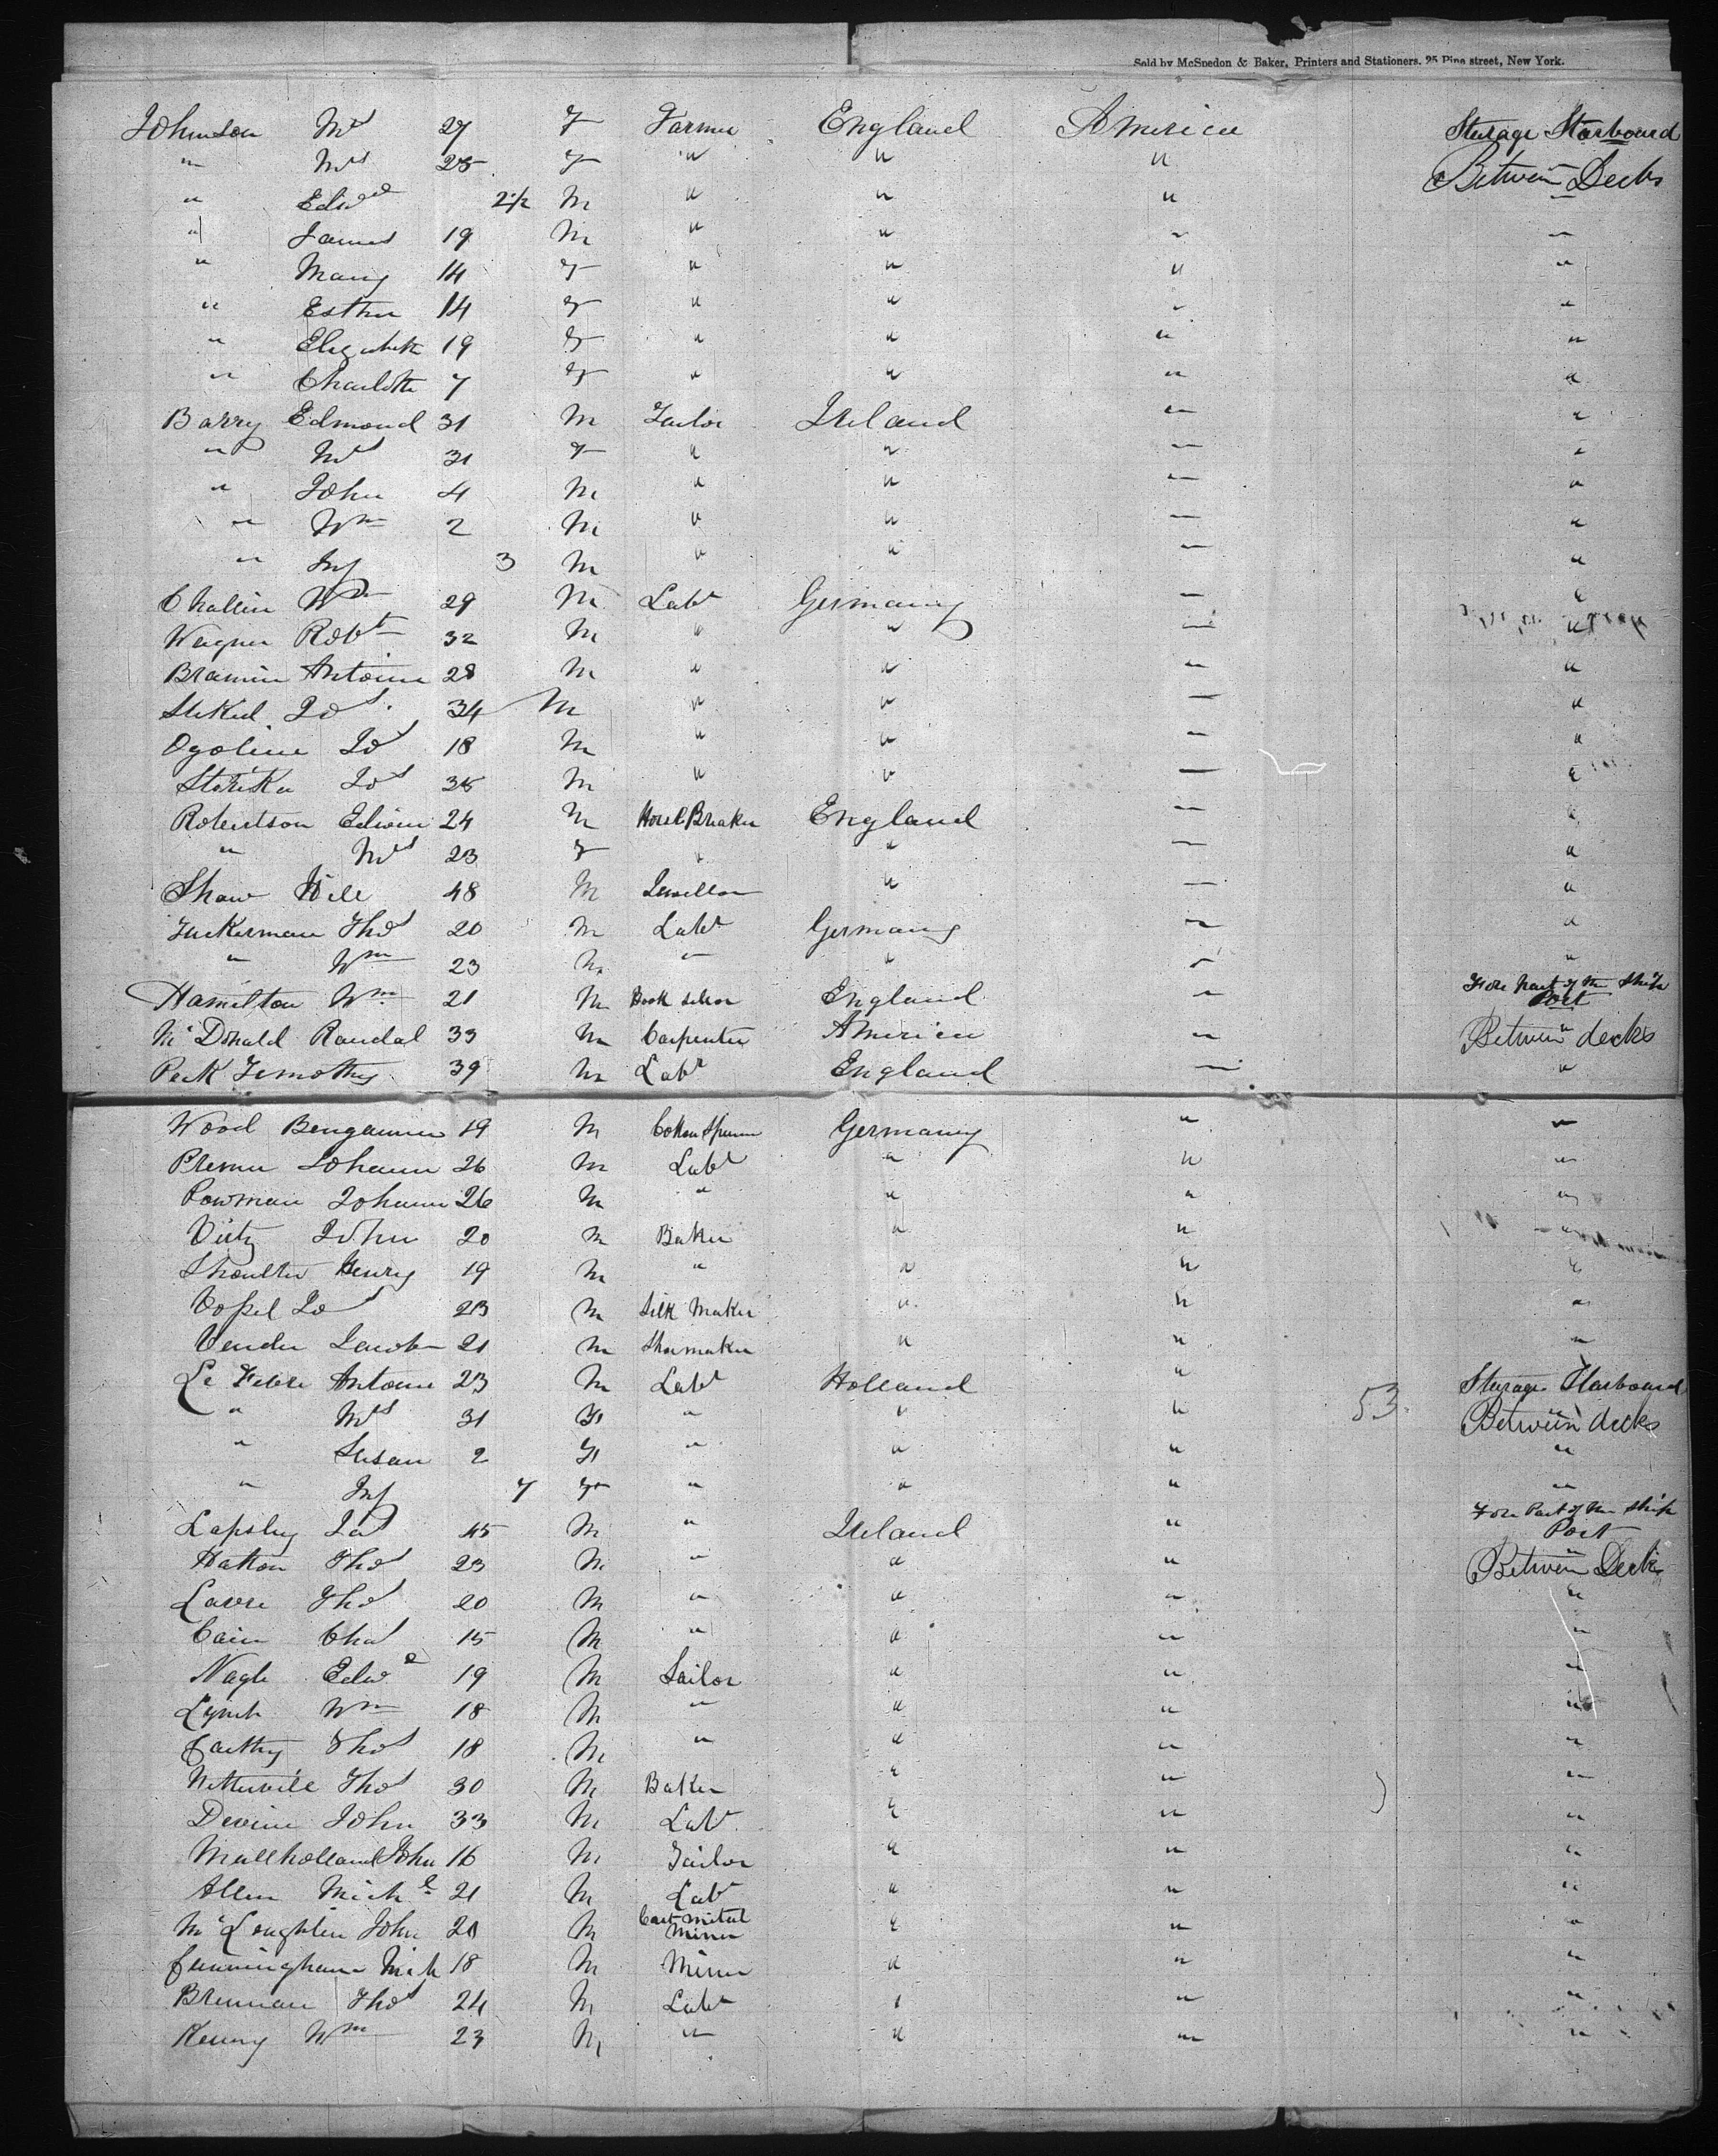 Sold by McSpedon & Baker, Printers and Stationers, 25 Pine street, New York.
Johnson Mrs 27 F Farmer England America Sturage Starboard
" Mrs 25 F " " " Between Decks
" Edwd 2½ M " " " "
" James 19 M " " " "
" Mary 14 F " " " "
" Esther 14 F " " " "
" Elizabeth 19 F " " " "
" Charlotte 7 F " " " "
Barry Edmond 31 M Tailor Ireland " "
" Mrs 31 F " " " "
" John 4 M " " " "
" Wm 2 M " " " "
" Inf 3 M " " " "
Wm 29 M Labr Germany " "
Wagner Robt 32 M " " " "
Antoine 28 M " " " "
Jos 34 M " " " "
Ogoline Jos 18 M " " " "
Jos 35 M " " " "
Robertson Edwin 24 M England " "
" Mrs 23 F " " " "
Shaw Will 48 M " " "
Tuckerman Thos 20 M Labr Germany " "
" Wm 23 M " " " "
Hamilton Wm 21 M Book seller England " Fore Part of the Ship Port
McDonald Randal 33 M Carpenter America " Between decks
Peck Timothy 39 M Labr England " "
Wood Bengamin 19 M Cotton Spinner Germany " "
Johann 26 M Labr " " "
Bowman Johann 26 M " " " "
John 20 M Baker " " "
Henry 19 M " " " "
Jos 23 M Silk Maker " " "
Jacob 21 M Shoemaker " " "
Le Febre Antoine 23 M Labr Holland " 53 Sturage Starboard
" Mrs 31 F " " " Between decks
" Susan 2 F " " " "
" Inf 7 F " " " "
Lapsley Jas 45 M " Ireland " Fore Part of the Ship Port
Hatton Thos 23 M " " " Between Decks
Thos 20 M " " " "
Cain Chas 15 M " " " "
Nagle Edwd 19 M Sailor " " "
Lynch Wm 18 M " " " "
Carthy Thos 18 M " " " "
Netterville Thos 30 M Baker " " "
Devine John 33 M Labr " " "
Mullholland John 16 M Tailor " " "
Allen Michl 21 M Labr " " "
McLoughlin John 20 M Miner " " "
Cunningham Mich 18 M Miner " " "
Brennan Thos 24 M Labr " " "
Kenny Wm 23 M " " " "